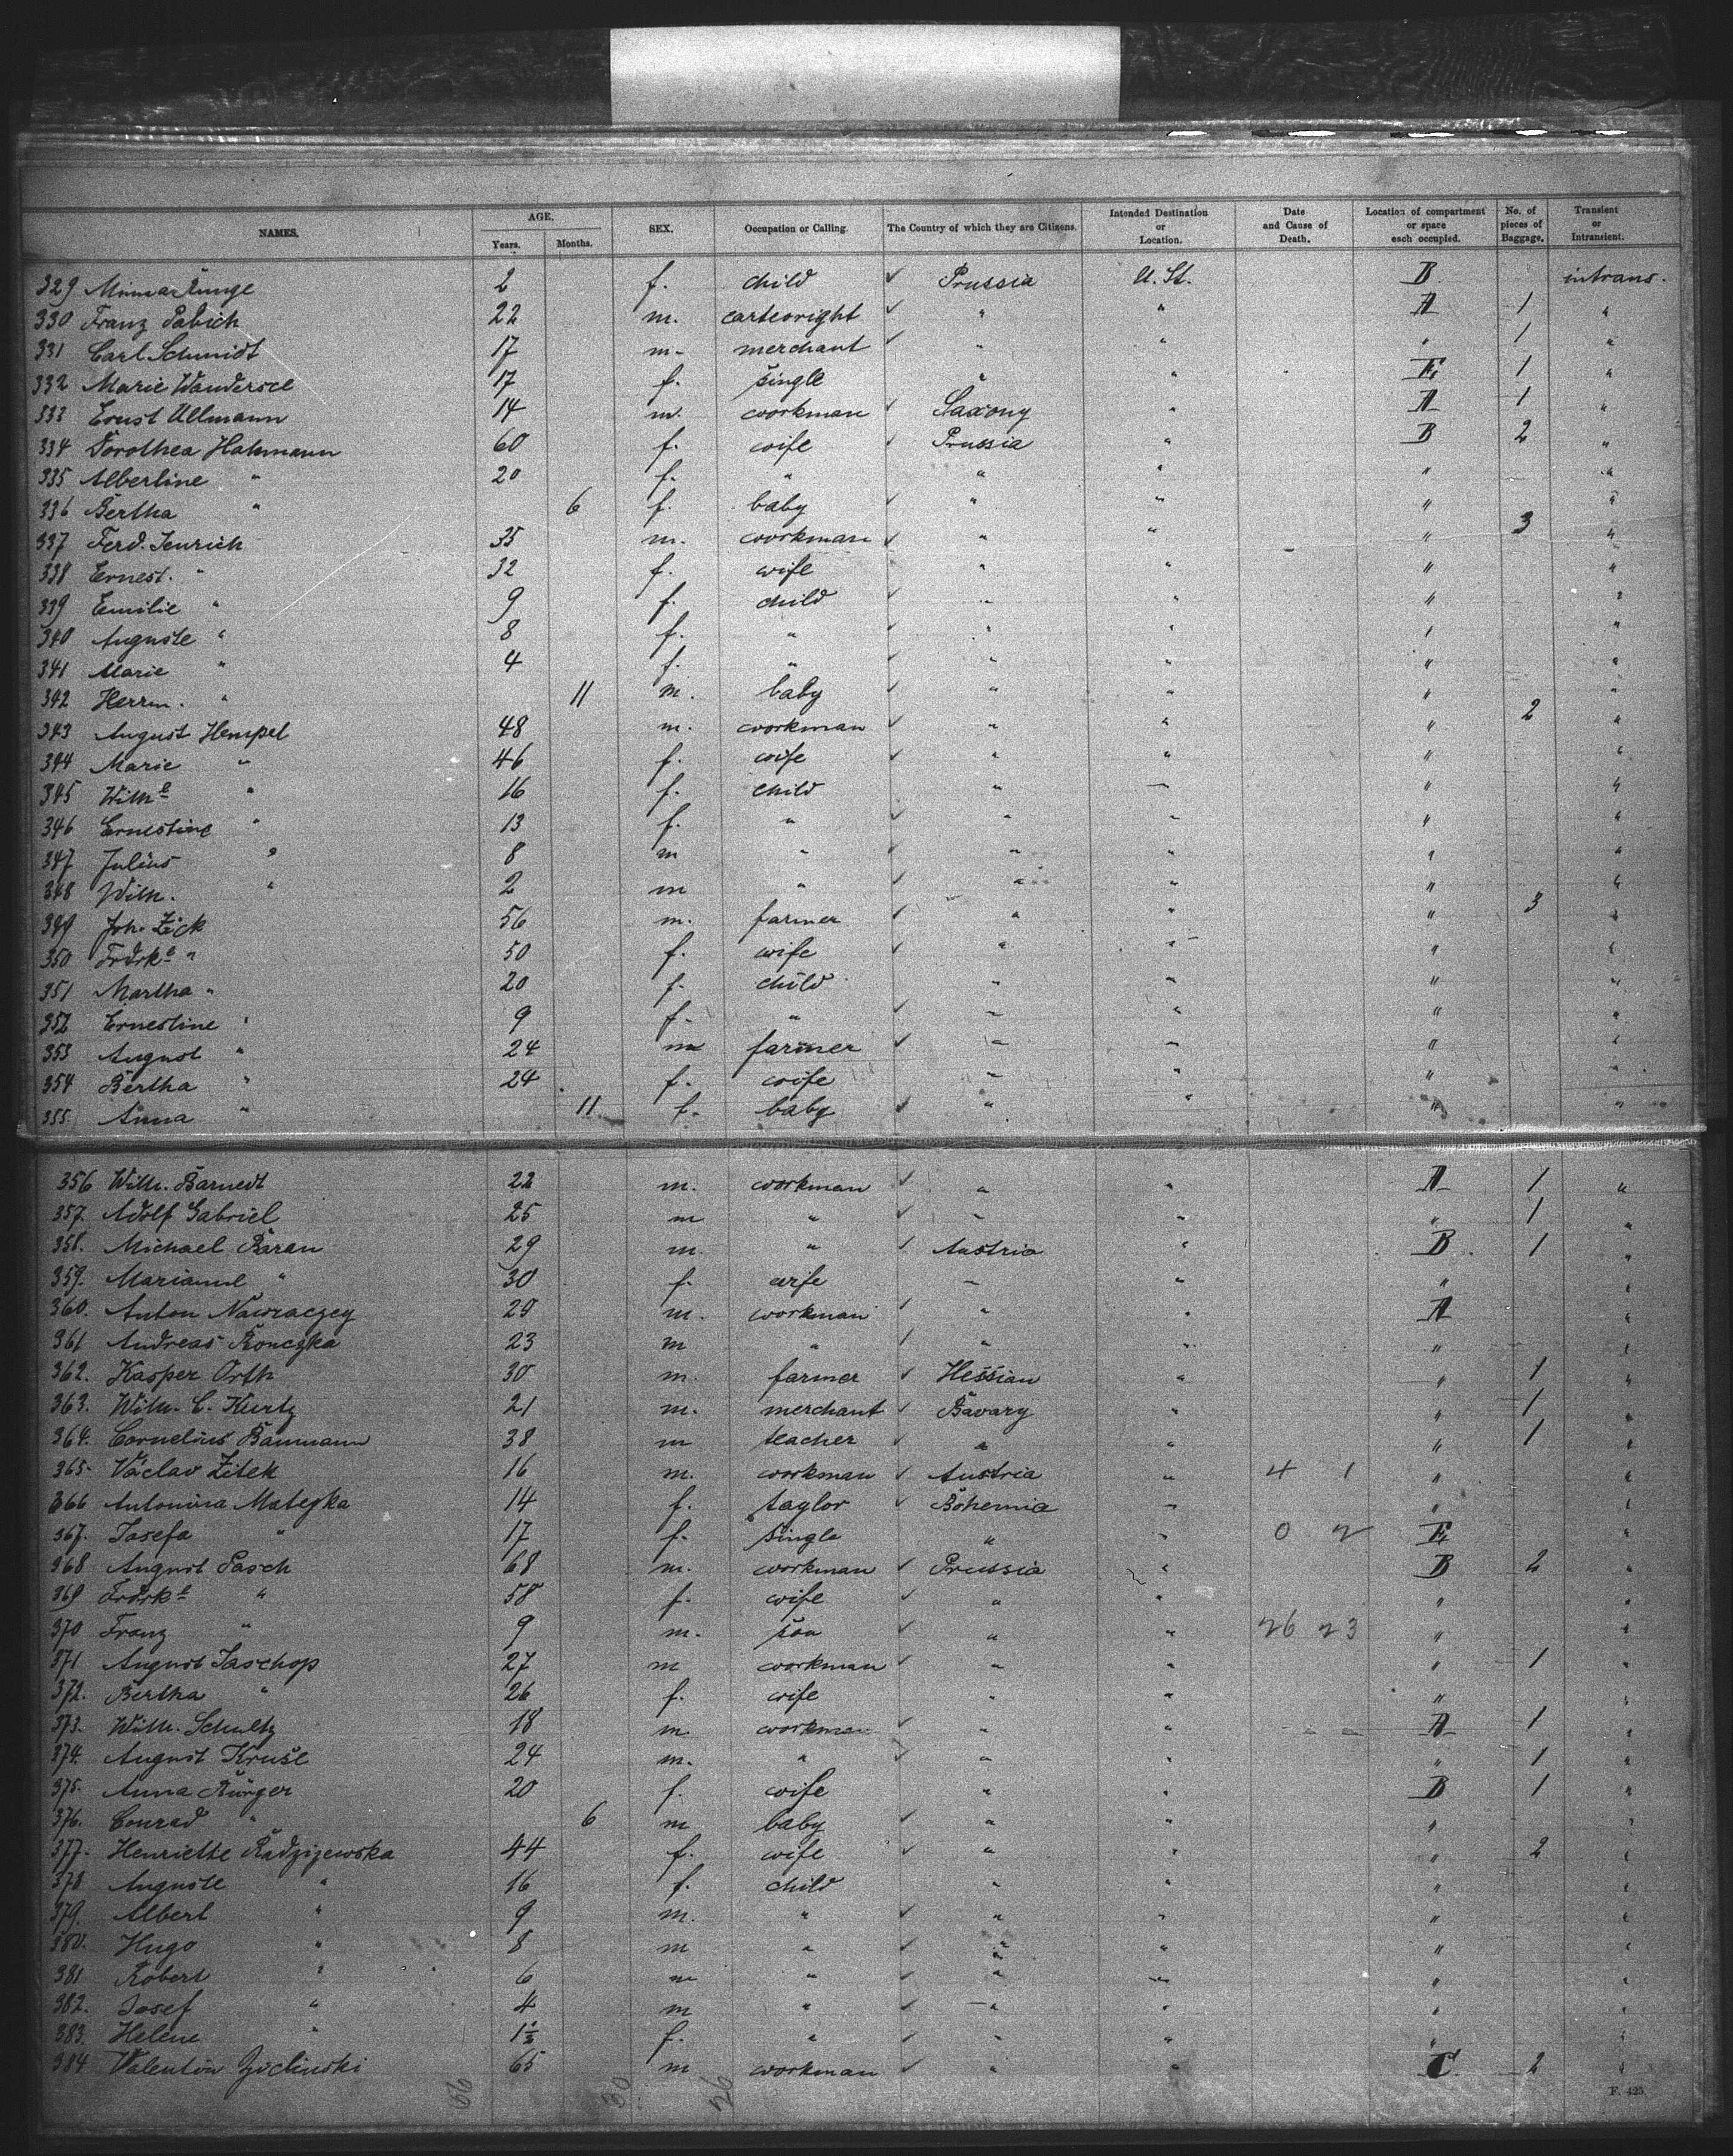 NAMES. AGE. Years. Months. SEX. Occupation or Calling. The Country of which they are Citizens. Intended Destination or Location. Date and Cause of Death. Location of compartment or space each occupied. No. of pieces of Baggage. Transient or Intransient.
329 Minna Runge 2 f. child ✓ Prussia U. St. B intrans.
330 Franz Pabich 22 m. carteoright ✓ " " A 1 "
331 Carl Schmidt 17 m. merchant ✓ " " " 1 "
332 Marie Wandersee 17 f. single " " E 1 "
333 Ernst Ullmann 14 m. workman ✓ Saxony " A 1 "
334 Dorothea Hahmann 60 f. wife ✓ Prussia " B 2 "
335 Albertine " 20 f. " " " " "
336 Bertha " 6 f. baby ✓ " " " "
337 Ferd. Jenrich 35 m. workman ✓ " " " 3 "
338 Ernest. " 32 f. wife " " " "
339 Emilie " 9 f. child ✓ " " " "
340 Auguste " 8 f. " ✓ " " " "
341 Marie " 4 f. " ✓ " " " "
342 Herrm. " 11 m. baby ✓ " " " "
343 August Hempel 48 m. workman ✓ " " " 2 "
344 Marie " 46 f. wife ✓ " " " "
345 Wilhe " 16 f. child " " " "
346 Ernestine " 13 f. " ✓ " " " "
347 Julius " 8 m " ✓ " " " "
348 Wilh. " 2 m " ✓ " " " "
349 Joh. Zick 56 m. farmer ✓ " " " 3 "
350 Frdrke " 50 f. wife ✓ " " " "
351 Martha " 20 f. child " " " "
352 Ernestine " 9 f. " ✓ " " " "
353 August " 24 m farmer ✓ " " " "
354 Bertha " 24 f. wife " " " "
355. Anna " 11 f. baby ✓ " " " "
356 Wilh. Barnedt 22 m. workman ✓ " " A 1 "
357. Adolf Gabriel 25 m " ✓ " " " 1 "
358. Michael Baran 29 m. " ✓ Austria " B 1 "
359. Marianne " 30 f. wife " " " "
360. Anton Nawraczey 29 m. workman ✓ " " A "
361 Andreas Ronczka 23 m " ✓ " " " "
362. Kasper Orth 30 m. farmer ✓ Hessian " " 1 "
363. Wilh. C. Kurtz 21 m. merchant ✓ Bavary " " 1 "
364. Cornelius Baumann 38 m teacher ✓ " " " 1 "
365. Václav Zitek 16 m. workman ✓ Austria " 4 1 " "
366 Antonina Mateyka 14 f. taylor ✓ Bohemia " " "
367. Josefa " 17 f. single " " 0 2 E "
368 August Pasch 68 m. workman ✓ Prussia " B 2 "
369 Frdrke " 58 f. wife ✓ " " " "
370 Franz " 9 m. son ✓ " " 26 23 " "
371 August Jaschop 27 m workman ✓ " " " 1 "
372. Bertha " 26 f. wife " " " "
373. Wilh. Schultz 18 m workman ✓ " " A 1 "
374. August Kruse 24 m. " ✓ " " " 1 "
375. Anna Rürger 20 f. wife " " B 1 "
376. Conrad " 6 m baby ✓ " " " "
377. Henriette Radzijewska 44 f. wife ✓ " " " 2 "
378 Auguste " 16 f. child " " " "
379. Albert " 9 m. " ✓ " " " "
380. Hugo " 8 m " ✓ " " " "
381 Robert " 6 m " ✓ " " " "
382. Josef " 4 m " ✓ " " " "
383. Helene " 1½ f. " ✓ " " " "
384 Valentin 65 m workman ✓ " " C 2 "
56 30 26
F. 425.